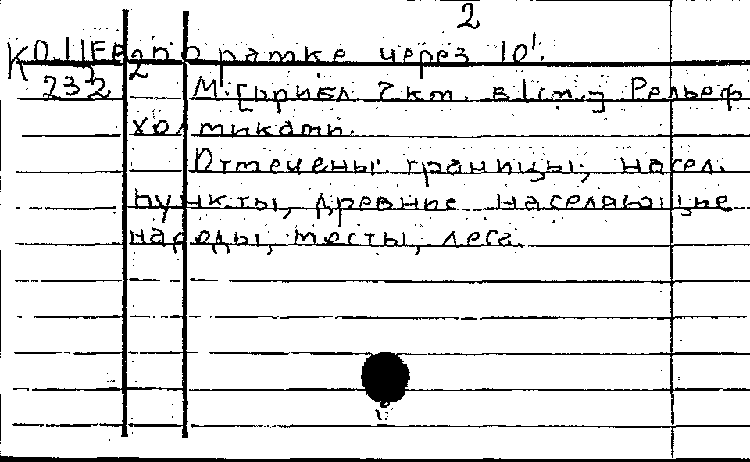 2
по рамке через 10'.
М. [прибл 2 км. в 1 см.] Рельеф
холмиками.
Отмечены границы, насел.
пункты, древние населяющие
народы, мосты, леса.